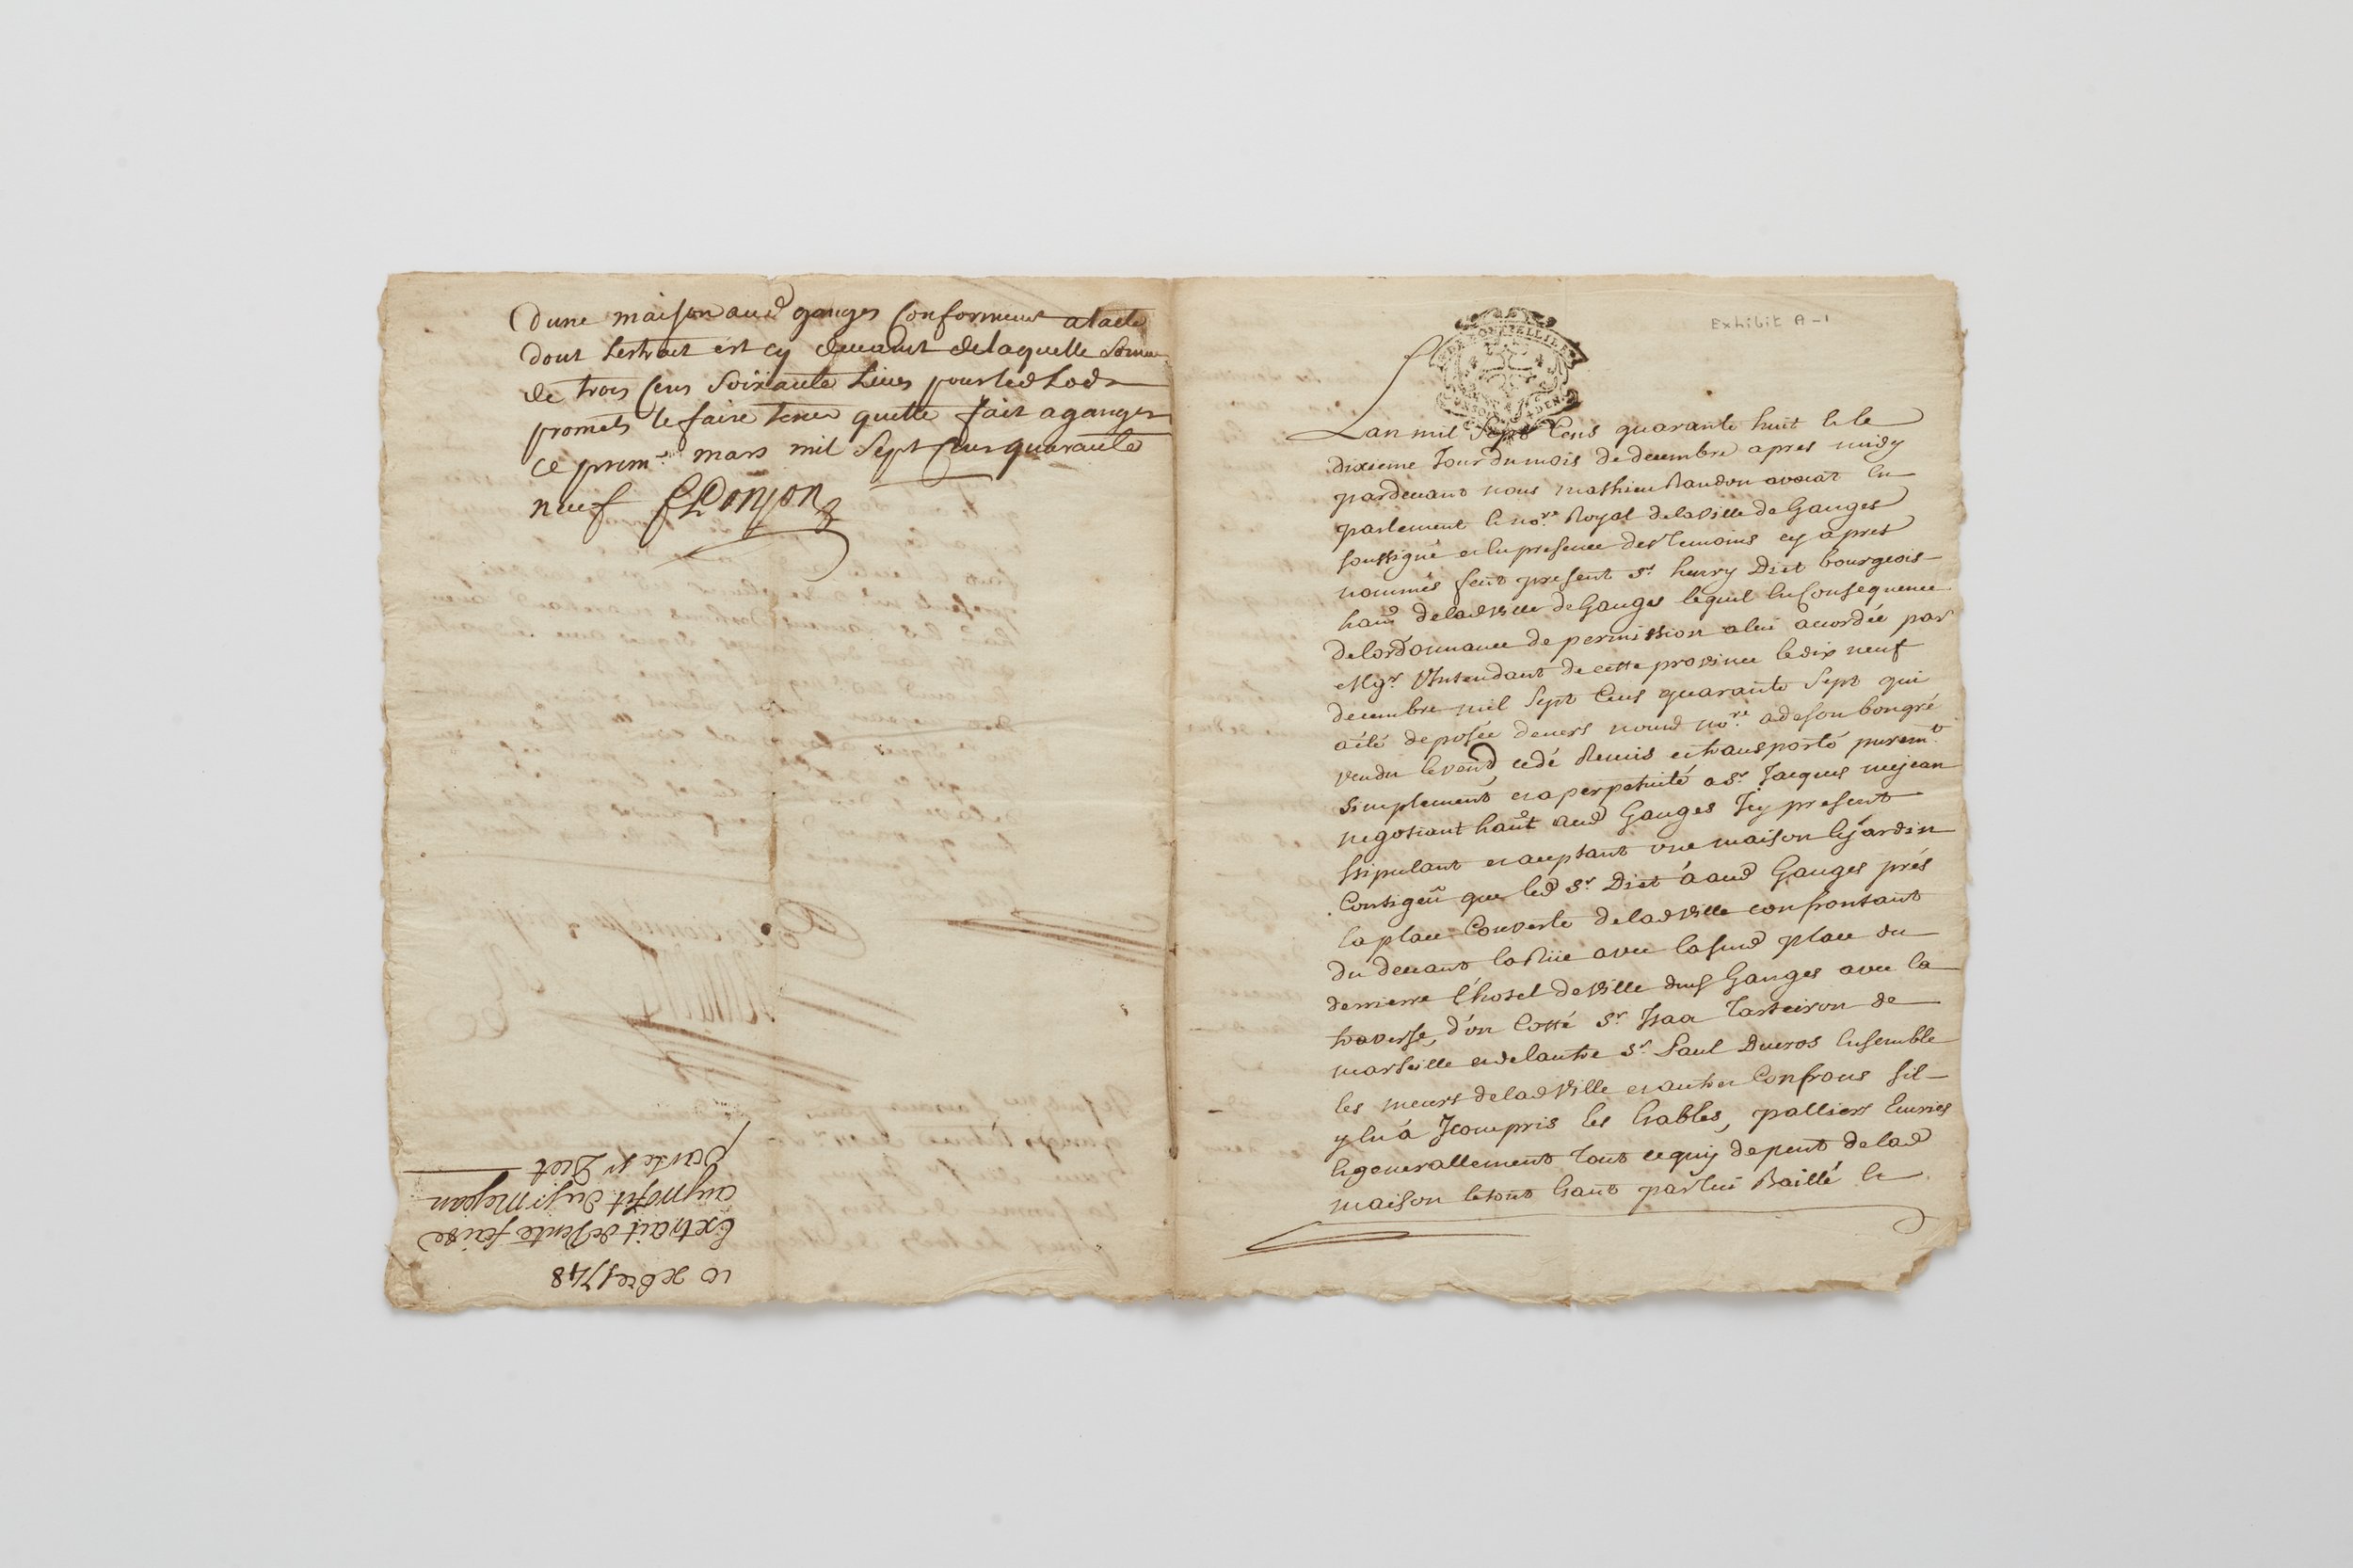 dune maison aud ganges Conformem.t a lacte
dont lextrait est cy devant de laquelle somme
de trois Cens Soixante livres pour led Lods
promets le faire tenir quitte fait a ganges
ce prem.r mars mil Sept Cens quarante
neuf Donjon
10 xbre 1748
Extrait de Vente faite
au profit du Sr Mejean
par le Sr Diet
Exhibit A-1
DE MONTPELLIER
Lan mil Sept Cens quarante huit & le
dixieme Jour du mois de decembre apres midy
pardevant nous mathieu Randon avocat en
parlement & no.re Royal de la ville de Ganges
soussigné et en presence des temoins cy apres
nommés feut present Sr henry Diet bourgeois
han.t de lad ville de Ganges lequel en Consequence
de lordonnance de permission a lui accordée par
Mgr. L'Intendant de cette province le dix neuf
decembre mil Sept Cens quarante Sept qui
a été deposée devers nousd no.re a de son bon gré
vendu & vend, cedé Remis et transporté purem.t
simplement et a perpetuité a Sr Jacques mejean
negotiant han.t aud Ganges Icy present
stipulant et acceptant une maison & jardin
Contigeû que led Sr Diet a aud Ganges prés
la place Couverte de lad ville confrontant
du devant la Rüe avec la susd place du
derriere l'hotel de ville dud Ganges avec la
traverse, d'un Cotté Sr Isaac Tarteiron de
marseille et de lautre Sr Paul Ducros Ensemble
les meurs de lad Ville et autres Confrons sil
y en a Jcompris les Crables, palliers Ecuries
& generallement tout ce quy depent de lad
maison le tout par lui Baillé &